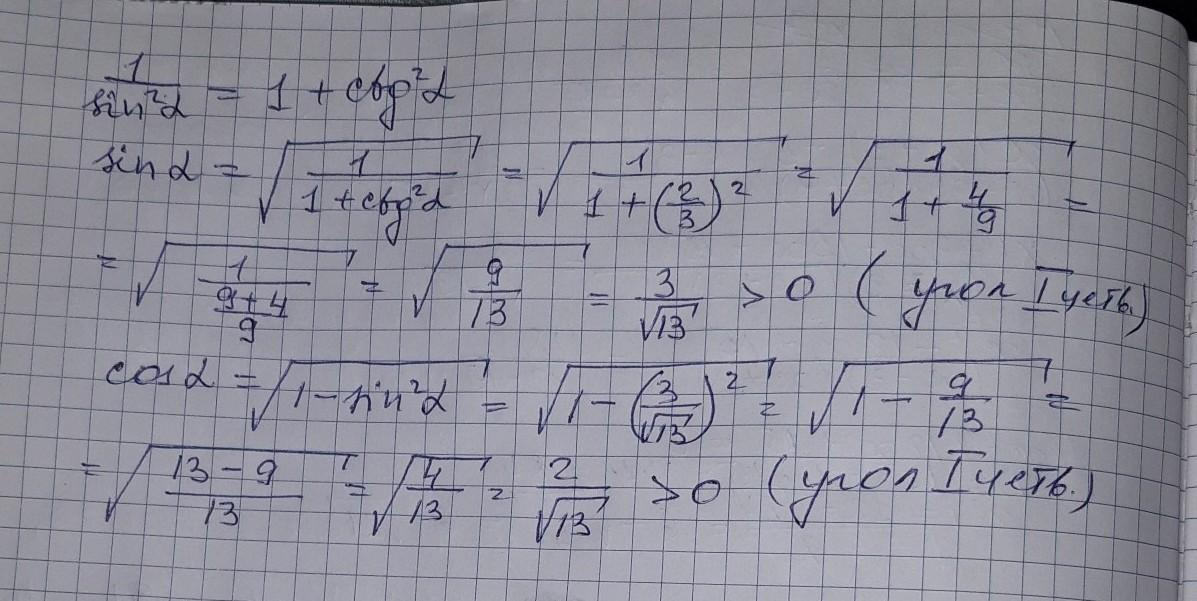 1/sin²α = 1 + ctg²α
sin α = √(1/(1 + ctg²α)) = √(1/(1 + (2/3)²)) = √(1/(1 + 4/9)) =
= √(1/((9+4)/9)) = √(9/13) = 3/√13 > 0 ( угол I четв.)
cos α = √(1 - sin²α) = √(1 - (3/√13)²) = √(1 - 9/13) =
= √((13 - 9)/13) = √(4/13) = 2/√13 > 0 (угол I четв.)